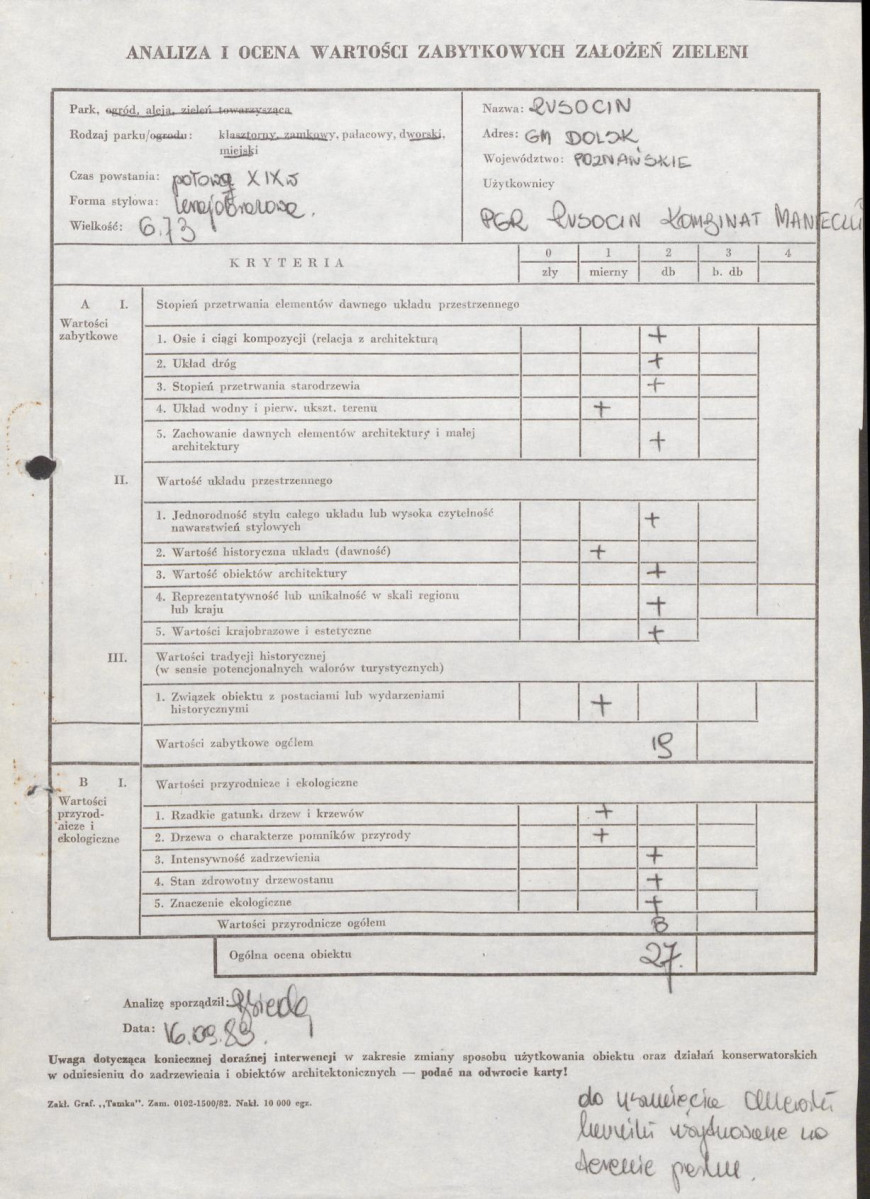 ANALIZA I OCENA WARTOŚCI ZABYTKOWYCH ZAŁOŻEŃ ZIELENI
Park, ogród, aleja, zieleń towarzysząca
Rodzaj parku/ogrodu: klasztorny, zamkowy, pałacowy, dworski,
miejski
Czas powstania: połowa XIX w
Forma stylowa: krajobrazowa.
Wielkość: 6.73
Nazwa: RUSOCIN
Adres: GM DOLSK
Województwo: POZNAŃSKIE
Użytkownicy
PGR RUSOCIN KOMBINAT MANIECZKI
KRYTERIA
0 1 2 3 4
zły mierny db b. db
A I. Stopień przetrwania elementów dawnego układu przestrzennego
Wartości
zabytkowe
1. Osie i ciągi kompozycji (relacja z architekturą +
2. Układ dróg +
3. Stopień przetrwania starodrzewia +
4. Układ wodny i pierw. ukszt. terenu +
5. Zachowanie dawnych elementów architektury i małej
architektury +
II. Wartość układu przestrzennego
1. Jednorodność stylu całego układu lub wysoka czytelność
nawarstwień stylowych +
2. Wartość historyczna układu (dawność) +
3. Wartość obiektów architektury +
4. Reprezentatywność lub unikalność w skali regionu
lub kraju +
5. Wartości krajobrazowe i estetyczne +
III. Wartości tradycji historycznej
(w sensie potencjonalnych walorów turystycznych)
1. Związek obiektu z postaciami lub wydarzeniami
historycznymi +
Wartości zabytkowe ogółem 19
B I. Wartości przyrodnicze i ekologiczne
Wartości
przyrod-
nicze i
ekologiczne
1. Rzadkie gatunki drzew i krzewów +
2. Drzewa o charakterze pomników przyrody +
3. Intensywność zadrzewienia +
4. Stan zdrowotny drzewostanu +
5. Znaczenie ekologiczne +
Wartości przyrodnicze ogółem 8
Ogólna ocena obiektu 27.
Analizę sporządził:
Data: 16.09.89.
Uwaga dotycząca koniecznej doraźnej interwencji w zakresie zmiany sposobu użytkowania obiektu oraz działań konserwatorskich
w odniesieniu do zadrzewienia i obiektów architektonicznych — podać na odwrocie karty!
Zakł. Graf. „Tamka”. Zam. 0102-1500/82. Nakł. 10 000 egz.
do usunięcia
na
terenie parku.